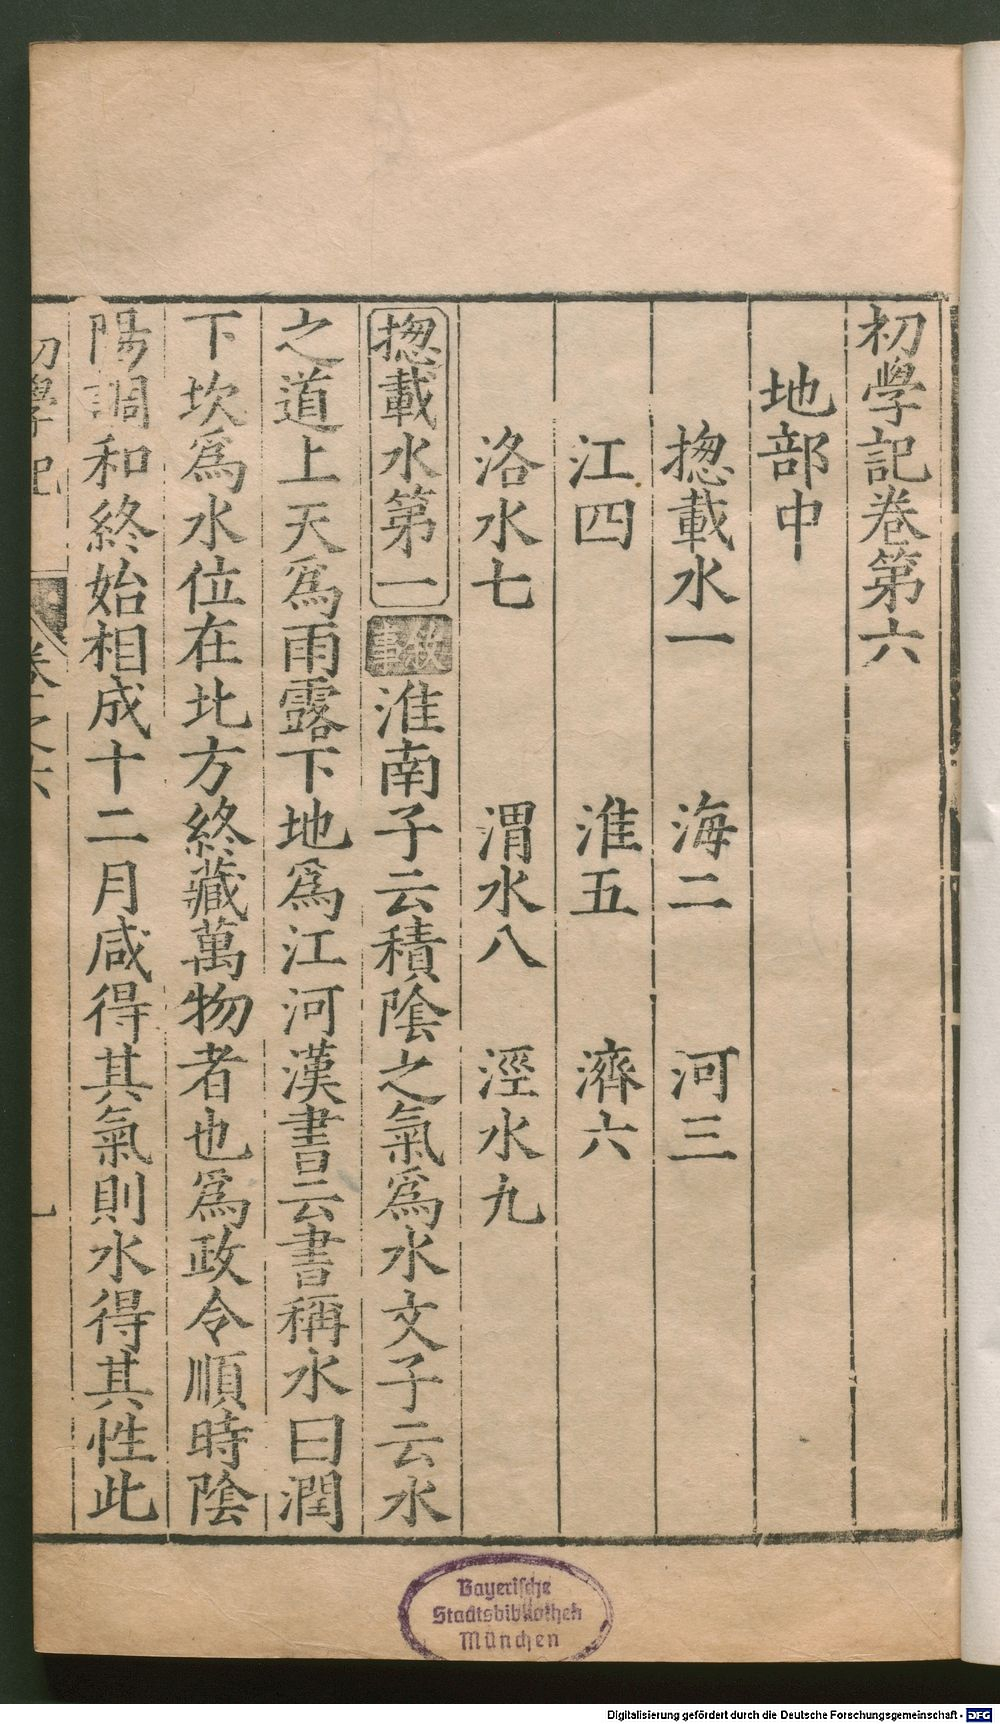 初學記卷第六
地部中
揔載水一　海二　河三
江四　淮五　濟六
洛水七　渭水八　涇水九
揔載水第一 敘事 淮南子云積隂之氣爲水文子云水
之道上天爲雨露下地爲江河漢書云書稱水曰潤
下坎爲水位在北方終藏萬物者也爲政令順時隂
陽調和終始相成十二月咸得其氣則水得其性此
初學記 卷之六 一
Bayerische
Staatsbibliothek
München
Digitalisierung gefördert durch die Deutsche Forschungsgemeinschaft - DFG